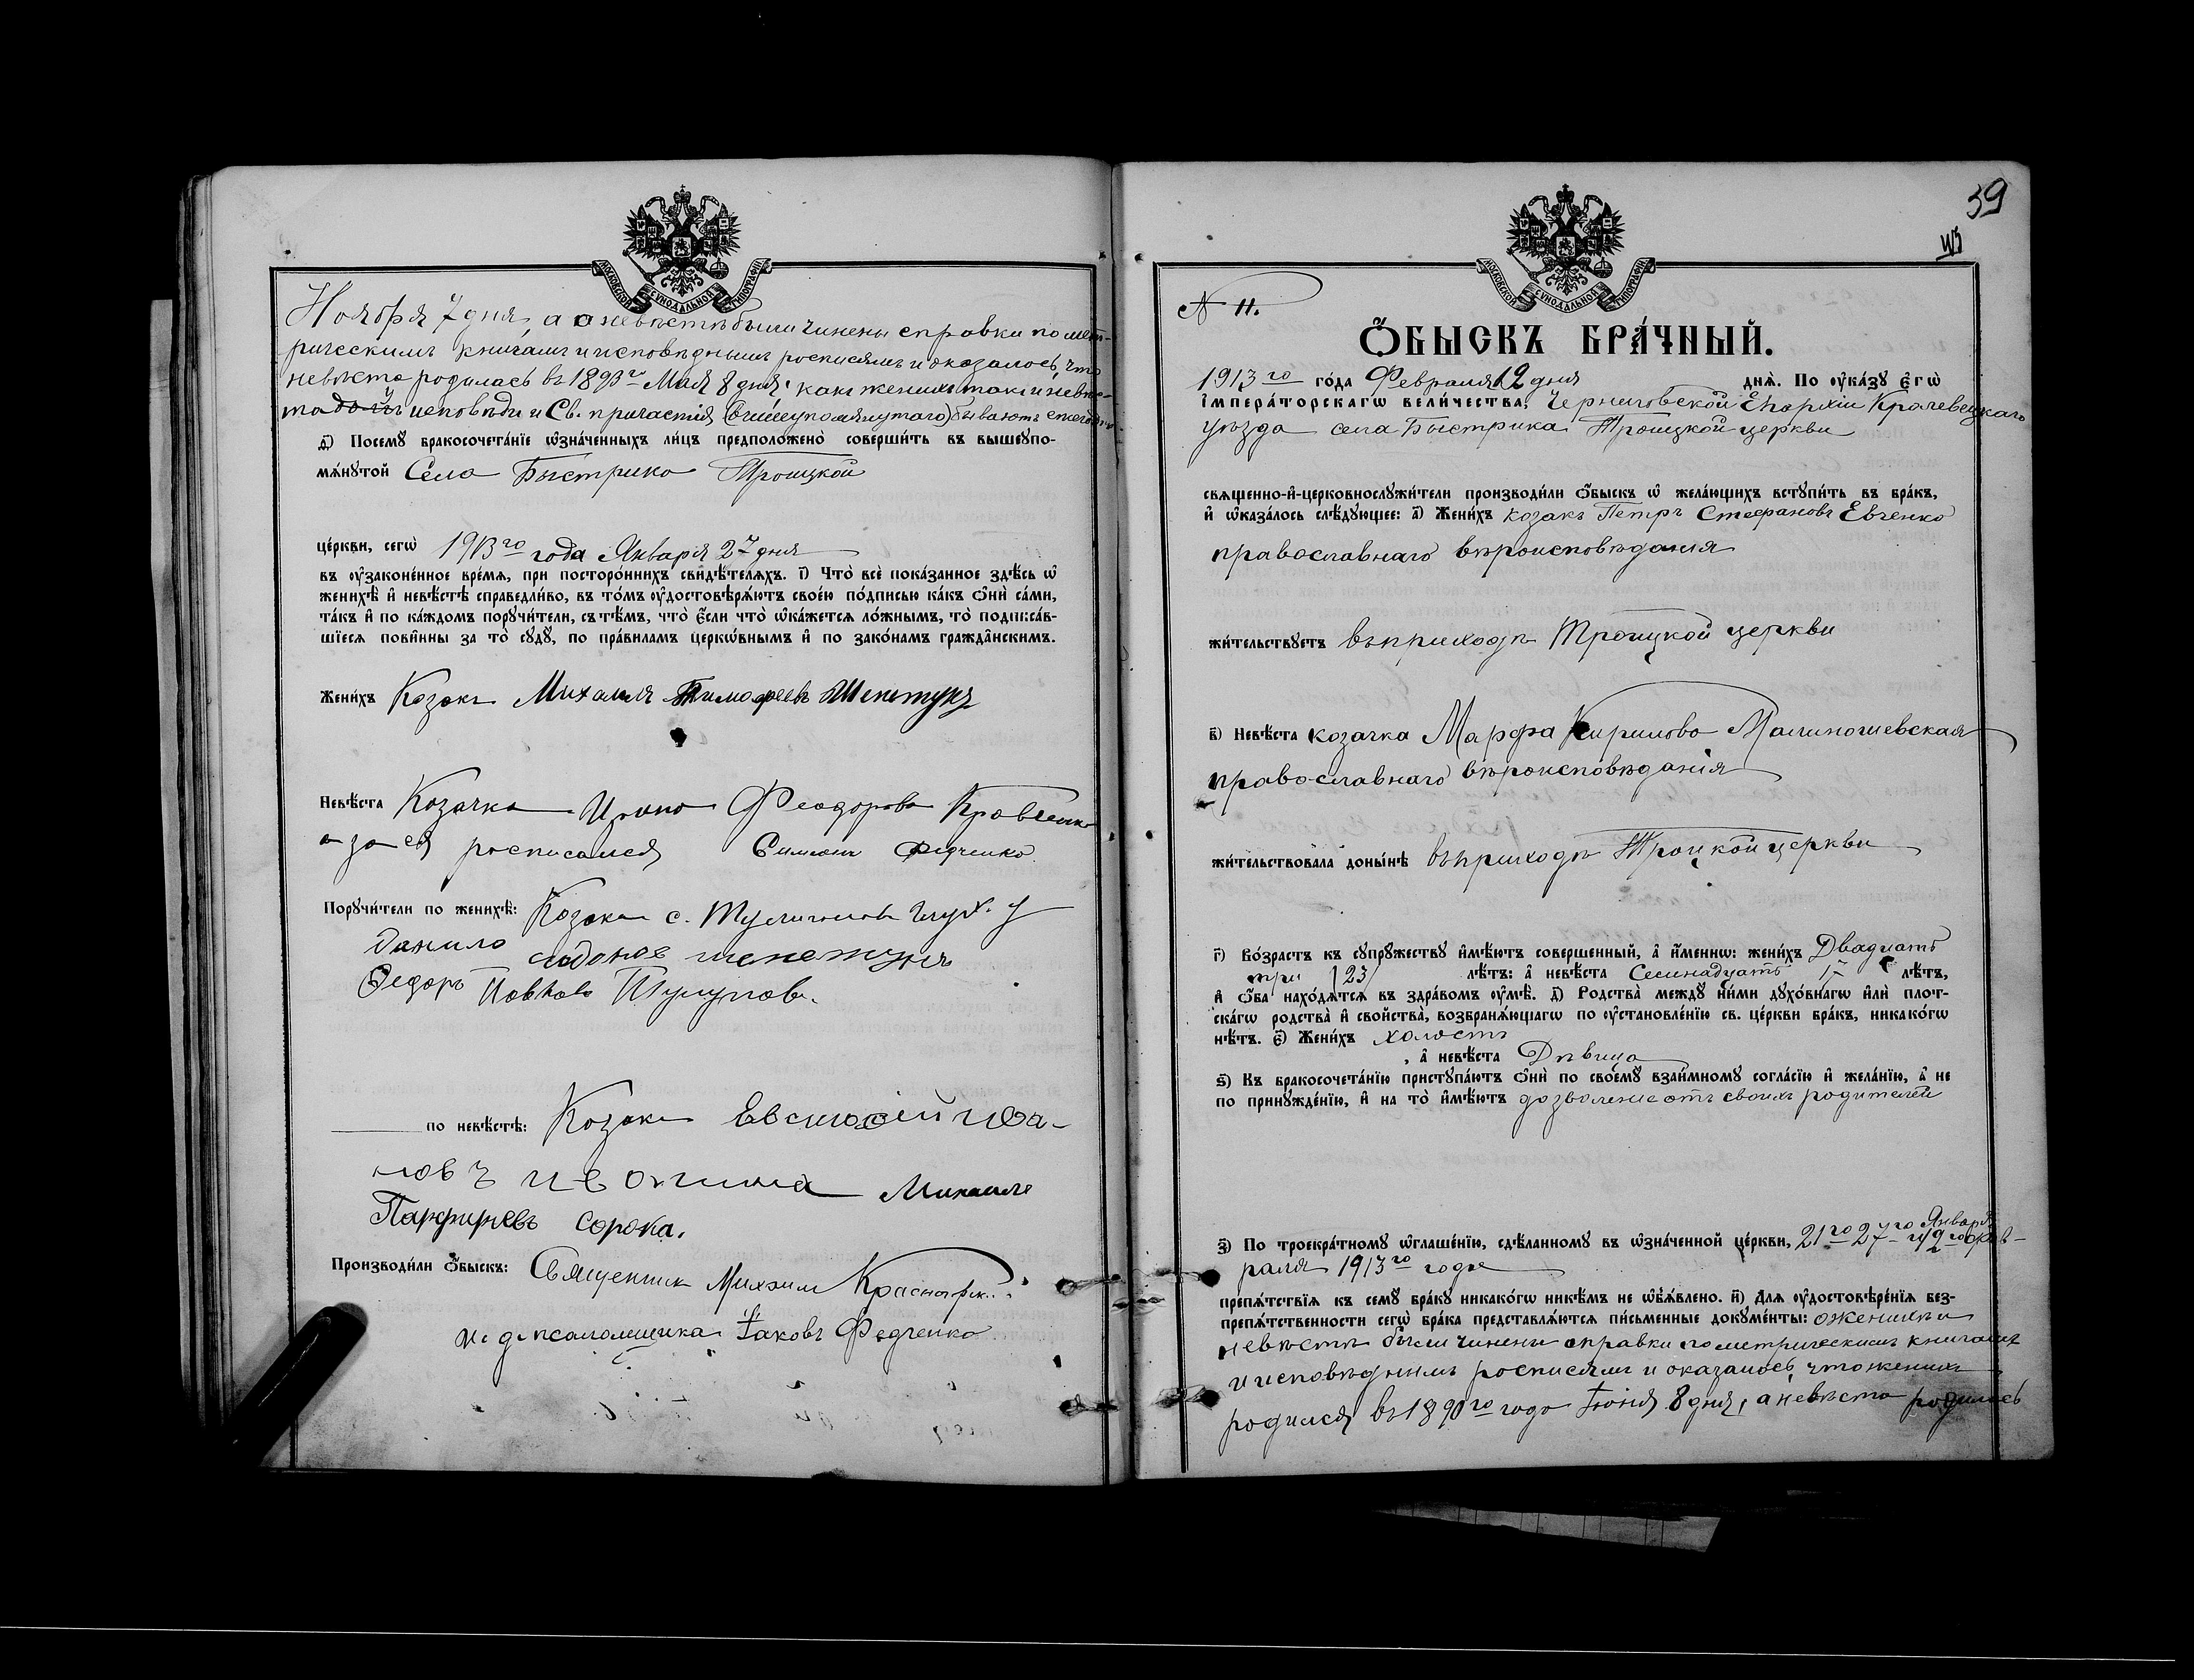 МОСКОВСКОЙ СѴНОДАЛЬНОЙ ТИПОГРАФІИ
Ноября 7 дня, а о невѣстѣ были чинены справки по мет-
рическимъ книгамъ и исповѣднымъ росписямъ и оказалось, что
невѣста родилась въ 1893го Мая 8 дня. какъ женихъ такъ и невѣс-
та у исповѣди и Св. причастія (вышеупомянутаго) бываютъ ежегодно
д҃) Посемꙋ бракосочета́нїе ѡ҆зна́ченныхъ ли́цъ предполо́жено соверши́ть въ вышеꙋпо-
мѧ́нꙋтой Села Быстрика Троицкой
це́ркви, сегѡ̀ 1913го года Января 27 дня
въ ᲂу҆зако́не́нное вре́мѧ, при посторо́ннихъ свидѣ́телѧхъ. і҃) Что̀ всѐ пока́занное здѣ́сь ѡ҆
женихѣ̀ и҆ невѣ́стѣ справедли́во, въ то́мъ ᲂу҆достовѣрѧ́ютъ свое́ю по́дписью ка́къ ѻ҆нѝ са́ми,
та́къ и҆ по ка́ждомъ порꙋчи́тели, съ тѣ́мъ, что̀ є҆́сли что̀ ѡ҆ка́жетсѧ ло́жнымъ, то̀ подписа́в-
шїесѧ пови́нны за то̀ сꙋдꙋ̀, по пра́виламъ церкѡ́внымъ и҆ по зако́намъ гражда́нскимъ.
Жени́хъ Козакъ Михаилъ Тимофеевъ Шекетунъ
Невѣ́ста Козачка Ирина Феодорова Кравченко
а за ея росписался Симеонъ Федченко
Порꙋчи́тели по женихѣ̀: Козаки с. Глух. у
Данило шекетунъ
Федоръ
по невѣ́стѣ: Козаки Евсювій Ива-
новъ Михаилъ
Парфирьевъ Сорока.
Производи́ли ѻ҆́быскъ: Священник Михаил
и. д. псаломщика Іаковъ Федченко
39
МОСКОВСКОЙ СѴНОДАЛЬНОЙ ТИПОГРАФІИ
N 11.
Ѻ҆БЫСКЪ БРА́ЧНЫЙ.
1913го го́да Февраля 12 дня днѧ̀. По ᲂу҆ка́зꙋ є҆гѡ̀
и҆мпера́торскагѡ вели́чества, Черниговской Епархіи Кролевецкаго
уѣзда села Быстрика Троицкой церкви
свѧщенно-и҆-церковнослꙋжи́тели производи́ли ѻ҆́быскъ ѡ҆ жела́ющихъ вступи́ть въ бра́къ,
и҆ ѡ҆каза́лось слѣ́дꙋющее: а҃) Жени́хъ козакъ Петръ Стефановъ Евченко
православнаго вѣроисповѣдания
жи́тельствꙋетъ въ приходѣ Троицкой церкви
в҃) Невѣ́ста козачка Марфа Кирилова Малиношевская
православнаго вѣроисповѣданія
жи́тельствовала доны́нѣ въ приходѣ Троцкой церкви
г҃) Во́зрастъ къ сꙋпрꙋ́жествꙋ и҆мѣ́ютъ соверше́нный, а҆ и҆́меннѡ: жени́хъ Двадцать
три /23/ лѣ́тъ: а҆ невѣ́ста Семнадцать лѣ́тъ,
и҆ ѻ҆́ба нахо́дѧтсѧ въ здра́вомъ ᲂу҆мѣ̀. д҃) Родства̀ междꙋ̀ ни́ми дꙋхо́внагѡ и҆лѝ плот-
ска́гѡ родства̀ и҆ сво́йства̀, возбранѧ́ющагѡ по ᲂу҆становле́нїю св. це́ркви бра́къ, никако́гѡ
нѣ́тъ. є҃) Жени́хъ холостъ
, а҆ невѣ́ста Дѣвица
ѕ҃) Къ бракосочета́нїю пристꙋпа́ютъ ѻ҆нѝ по своемꙋ̀ взаи́мномꙋ согла́сїю и҆ жела́нїю, а҆ не
по принꙋжде́нїю, и҆ на то̀ и҆мѣ́ютъ дозволение отъ своихъ родителей
з҃) По троекра́тномꙋ ѡ҆глаше́нїю, сдѣ́ланномꙋ въ ѡ҆зна́ченной це́ркви, 21го 27го Января и 2го Фев-
раля 1913го года
препѧ́тствїѧ къ семꙋ̀ бра́кꙋ никако́гѡ никѣ́мъ не ѡ҆б̾ѧ́влено. и҃) Длѧ ᲂу҆достовѣ́ренїѧ без-
препѧ́тственности сегѡ̀ бра́ка представлѧ́ютсѧ пи́сьменные докꙋме́нты: о женихѣ и
невѣстѣ были чинены справки по метрическимъ книгамъ
и исповѣднимъ росписямъ и оказалось, что женихъ
родился въ 1890го года Іюня 8 дня, а невѣста родилась